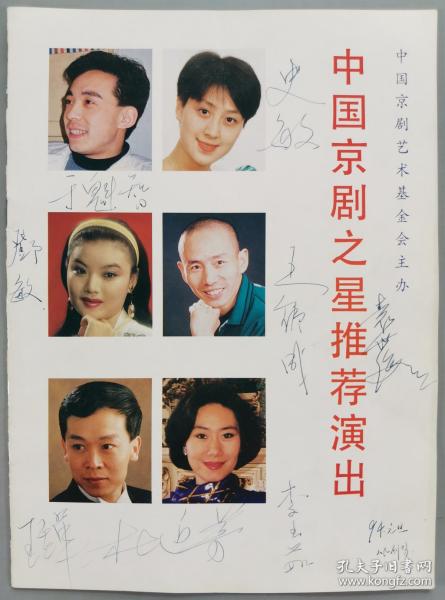 中国京剧艺术基金会主办
中国京剧之星推荐演出
史敏
于魁智
邓敏
王领成
袁世海
李玉茹
94元旦
孔夫子旧书网
www.kongfz.com